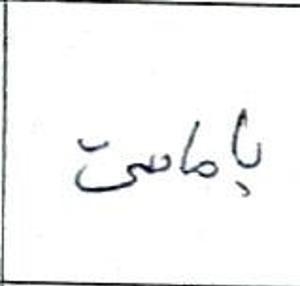 باماست